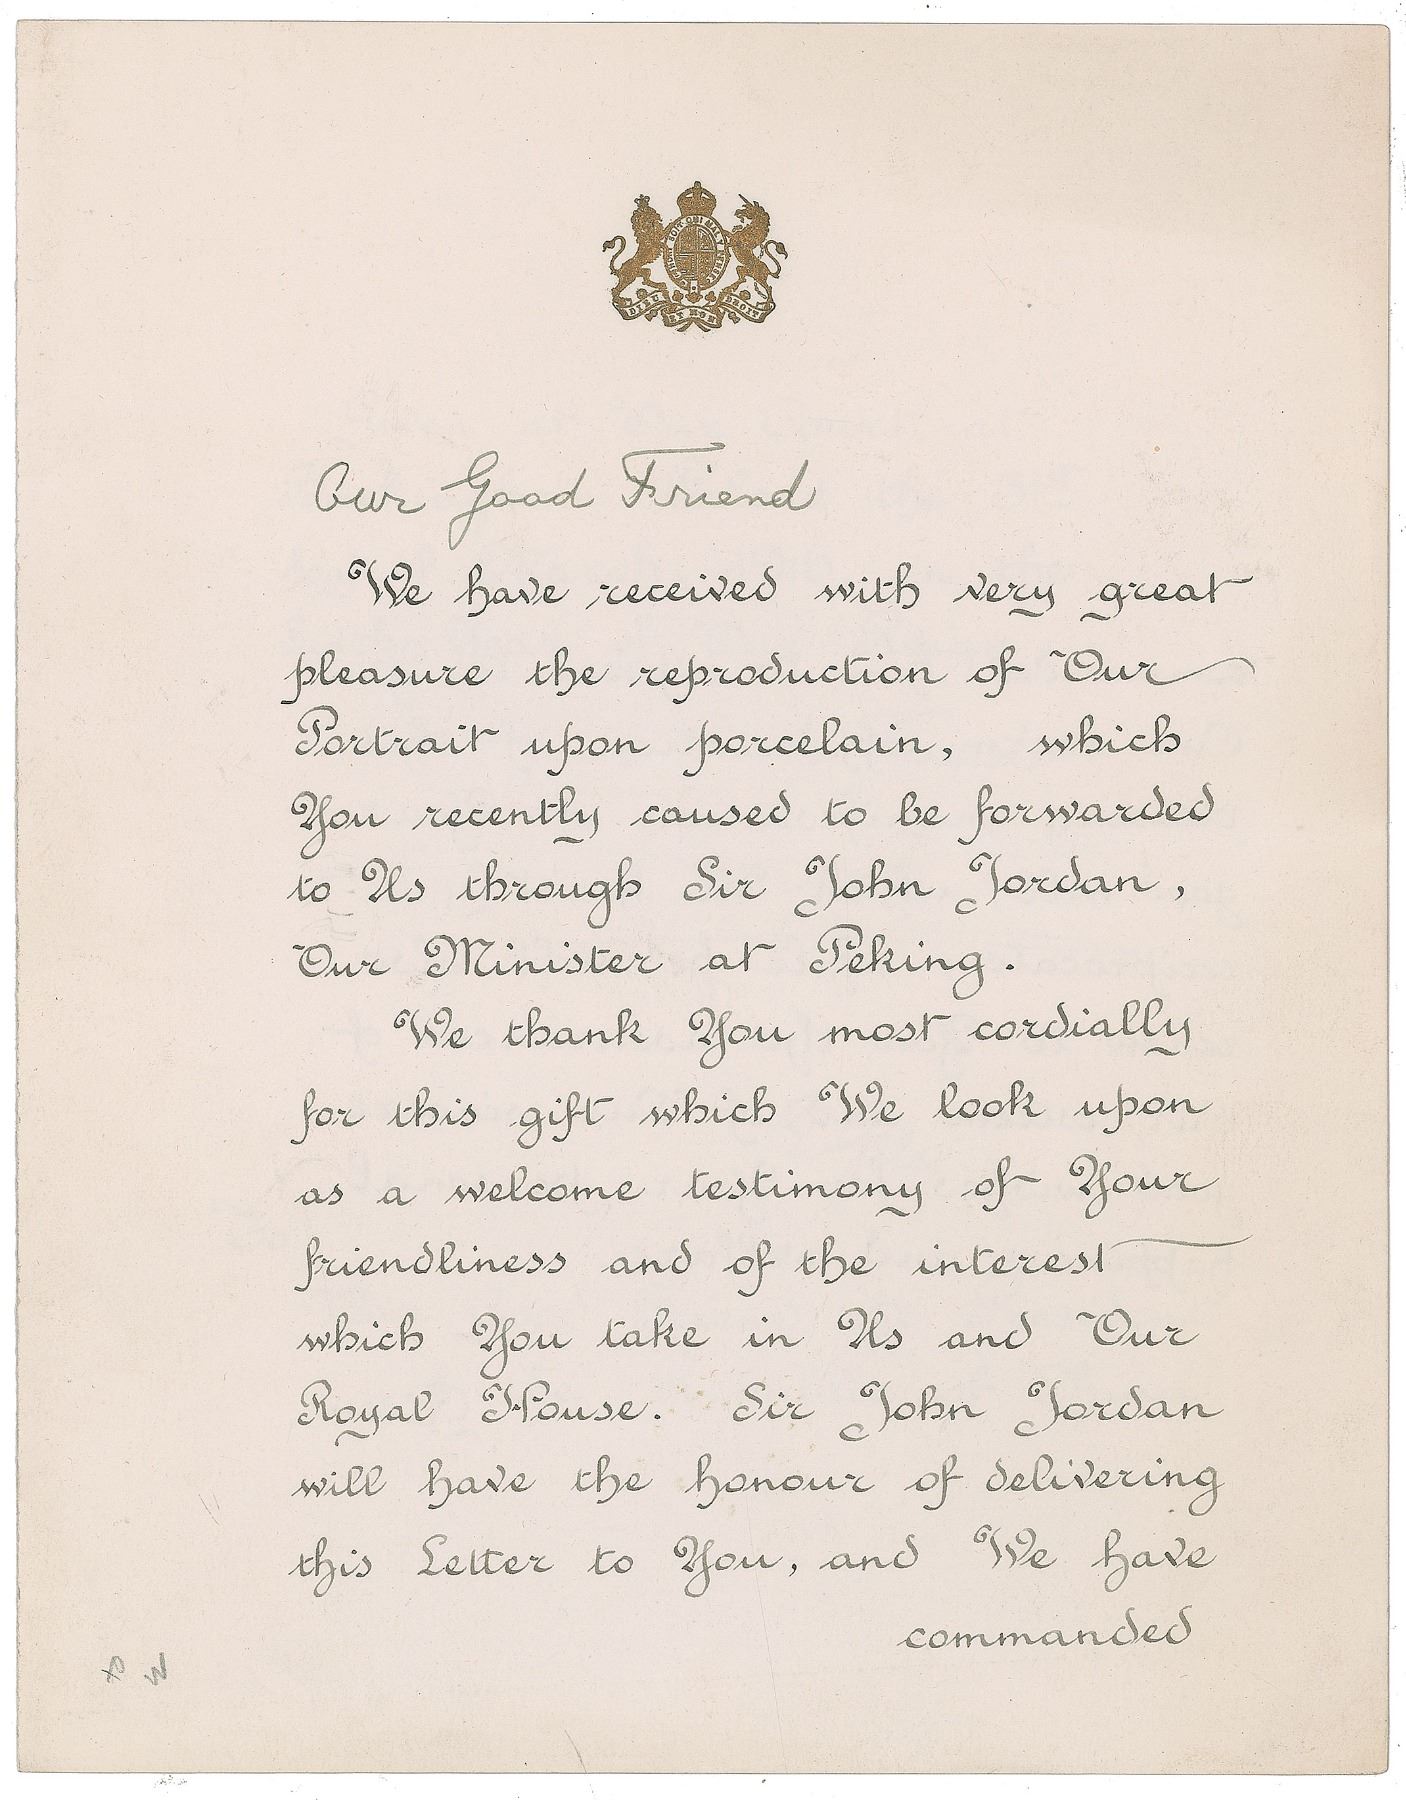 HONI SOIT QUI MAL Y PENSE
DIEU ET MON DROIT
Our Good Friend
We have received with very great
pleasure the reproduction of Our
Portrait upon porcelain, which
You recently caused to be forwarded
to Us through Sir John Jordan,
Our Minister at Peking.
We thank You most cordially
for this gift which We look upon
as a welcome testimony of Your
friendliness and of the interest
which You take in Us and Our
Royal House. Sir John Jordan
will have the honour of delivering
this Letter to You, and We have
commanded